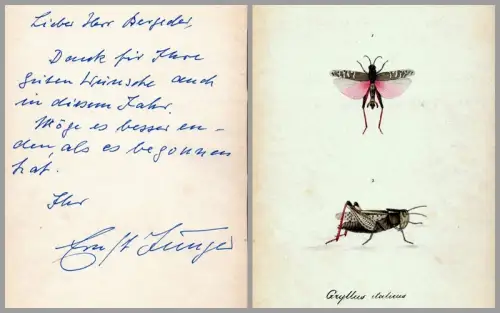 Lieber Herr Bergeder,
Dank für Ihre
guten Wünsche auch
in diesem Jahr.
Möge es besser en-
den, als es begonnen
hat.
Ihr
Ernst Jünger
1
2
Gryllus